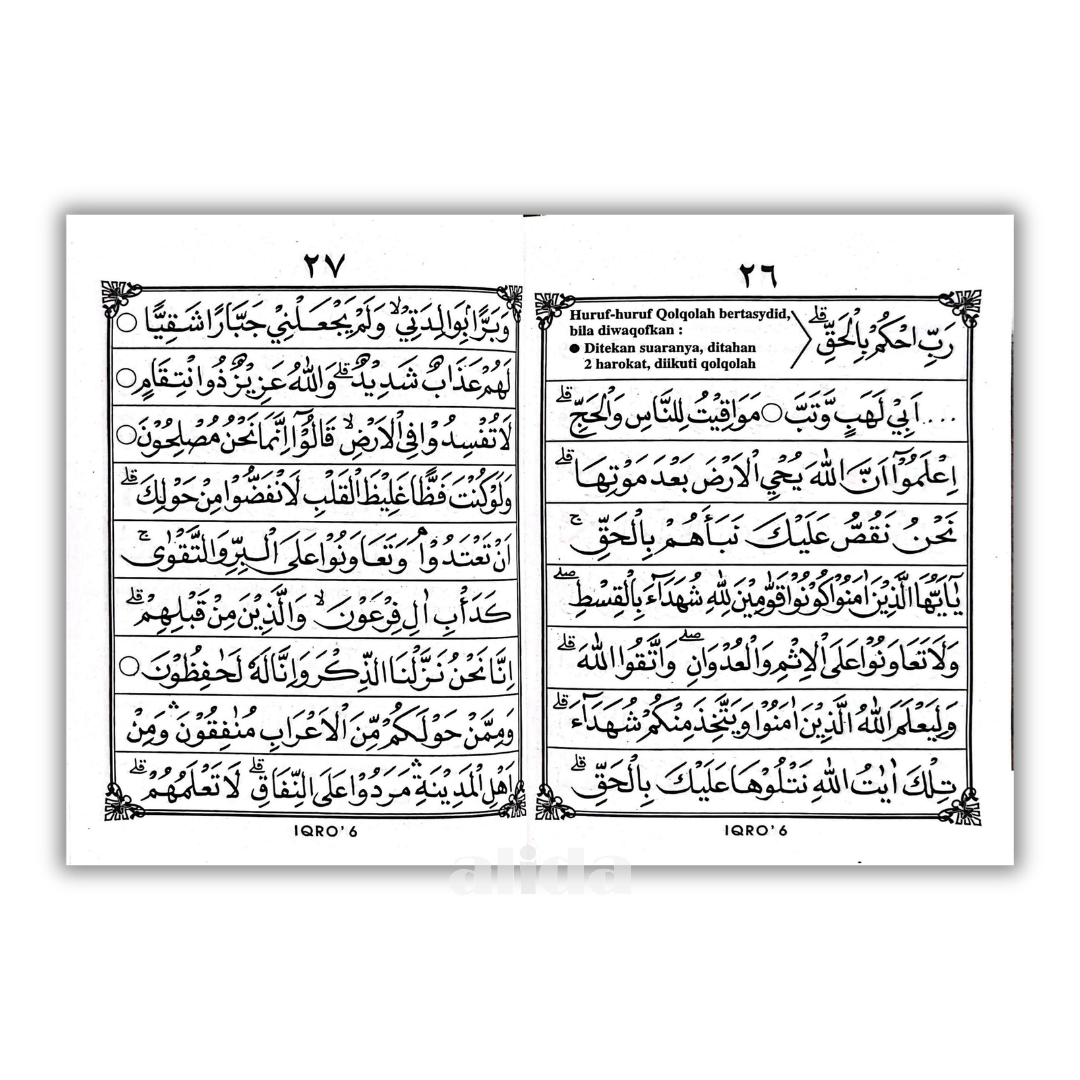 ٢٦
رَبِّ احْكُمْ بِالْحَقِّ ۗ
Huruf-huruf Qolqolah bertasydid,
bila diwaqofkan :
● Ditekan suaranya, ditahan
2 harokat, diikuti qolqolah
... اَبِيْ لَهَبٍ وَّتَبَّ ○ مَوَاقِيْتُ لِلنَّاسِ وَالْحَجِّ ۗ
اِعْلَمُوْٓا اَنَّ اللّٰهَ يُحْيِ الْاَرْضَ بَعْدَ مَوْتِهَا ۗ
نَحْنُ نَقُصُّ عَلَيْكَ نَبَأَهُمْ بِالْحَقِّ ۚ
يٰٓاَيُّهَا الَّذِيْنَ اٰمَنُوْا كُوْنُوْا قَوّٰمِيْنَ لِلّٰهِ شُهَدَآءَ بِالْقِسْطِ ۖ
وَلَا تَعَاوَنُوْا عَلَى الْاِثْمِ وَالْعُدْوَانِ ۖ وَاتَّقُوا اللّٰهَ ۗ
وَلِيَعْلَمَ اللّٰهُ الَّذِيْنَ اٰمَنُوْا وَيَتَّخِذَ مِنْكُمْ شُهَدَآءَ ۗ
تِلْكَ اٰيٰتُ اللّٰهِ نَتْلُوْهَا عَلَيْكَ بِالْحَقِّ ۗ
IQRO' 6
٢٧
وَبَرًّا بِوَالِدَتِيْ ۙ وَلَمْ يَجْعَلْنِيْ جَبَّارًا شَقِيًّا ○
لَهُمْ عَذَابٌ شَدِيْدٌ ۗ وَاللّٰهُ عَزِيْزٌ ذُوانْتِقَامٍ ○
لَا تُفْسِدُوْا فِى الْاَرْضِ ۙ قَالُوْٓا اِنَّمَا نَحْنُ مُصْلِحُوْنَ ○
وَلَوْ كُنْتَ فَظًّا غَلِيْظَ الْقَلْبِ لَانْفَضُّوْا مِنْ حَوْلِكَ ۗ
اَنْ تَعْتَدُوْا ۘ وَتَعَاوَنُوْا عَلَى الْبِرِّ وَالتَّقْوٰى ۚ
كَدَأْبِ اٰلِ فِرْعَوْنَ ۙ وَالَّذِيْنَ مِنْ قَبْلِهِمْ ۗ
اِنَّا نَحْنُ نَزَّلْنَا الذِّكْرَ وَاِنَّا لَهٗ لَحٰفِظُوْنَ ○
وَمِمَّنْ حَوْلَكُمْ مِّنَ الْاَعْرَابِ مُنٰفِقُوْنَ ۛ وَمِنْ
اَهْلِ الْمَدِيْنَةِ ۛ مَرَدُوْا عَلَى النِّفَاقِ ۗ لَا تَعْلَمُهُمْ ۗ
IQRO' 6
alida